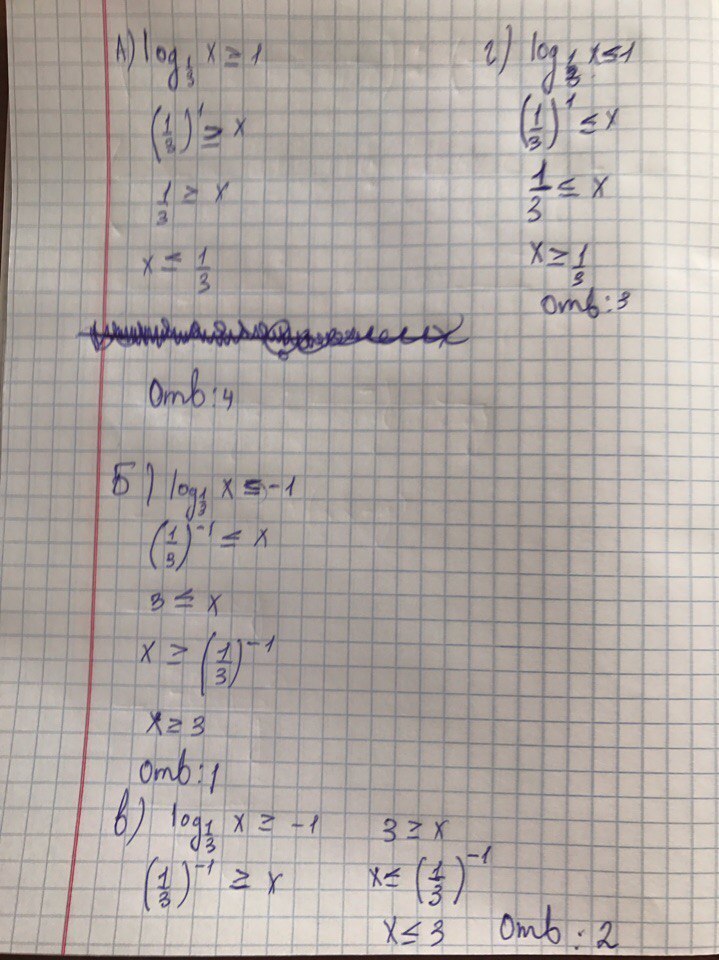 А) log_{1/3} x ≥ 1
(1/3)^1 ≥ x
1/3 ≥ x
x ≤ 1/3
Отв: 4
г) log_{1/3} x ≤ 1
(1/3)^1 ≤ x
1/3 ≤ x
x ≥ 1/3
Отв: 3
Б) log_{1/3} x ≤ -1
(1/3)^{-1} ≤ x
3 ≤ x
x ≥ (1/3)^{-1}
x ≥ 3
Отв: 1
в) log_{1/3} x ≥ -1
(1/3)^{-1} ≥ x
3 ≥ x
x ≤ (1/3)^{-1}
x ≤ 3 Отв: 2